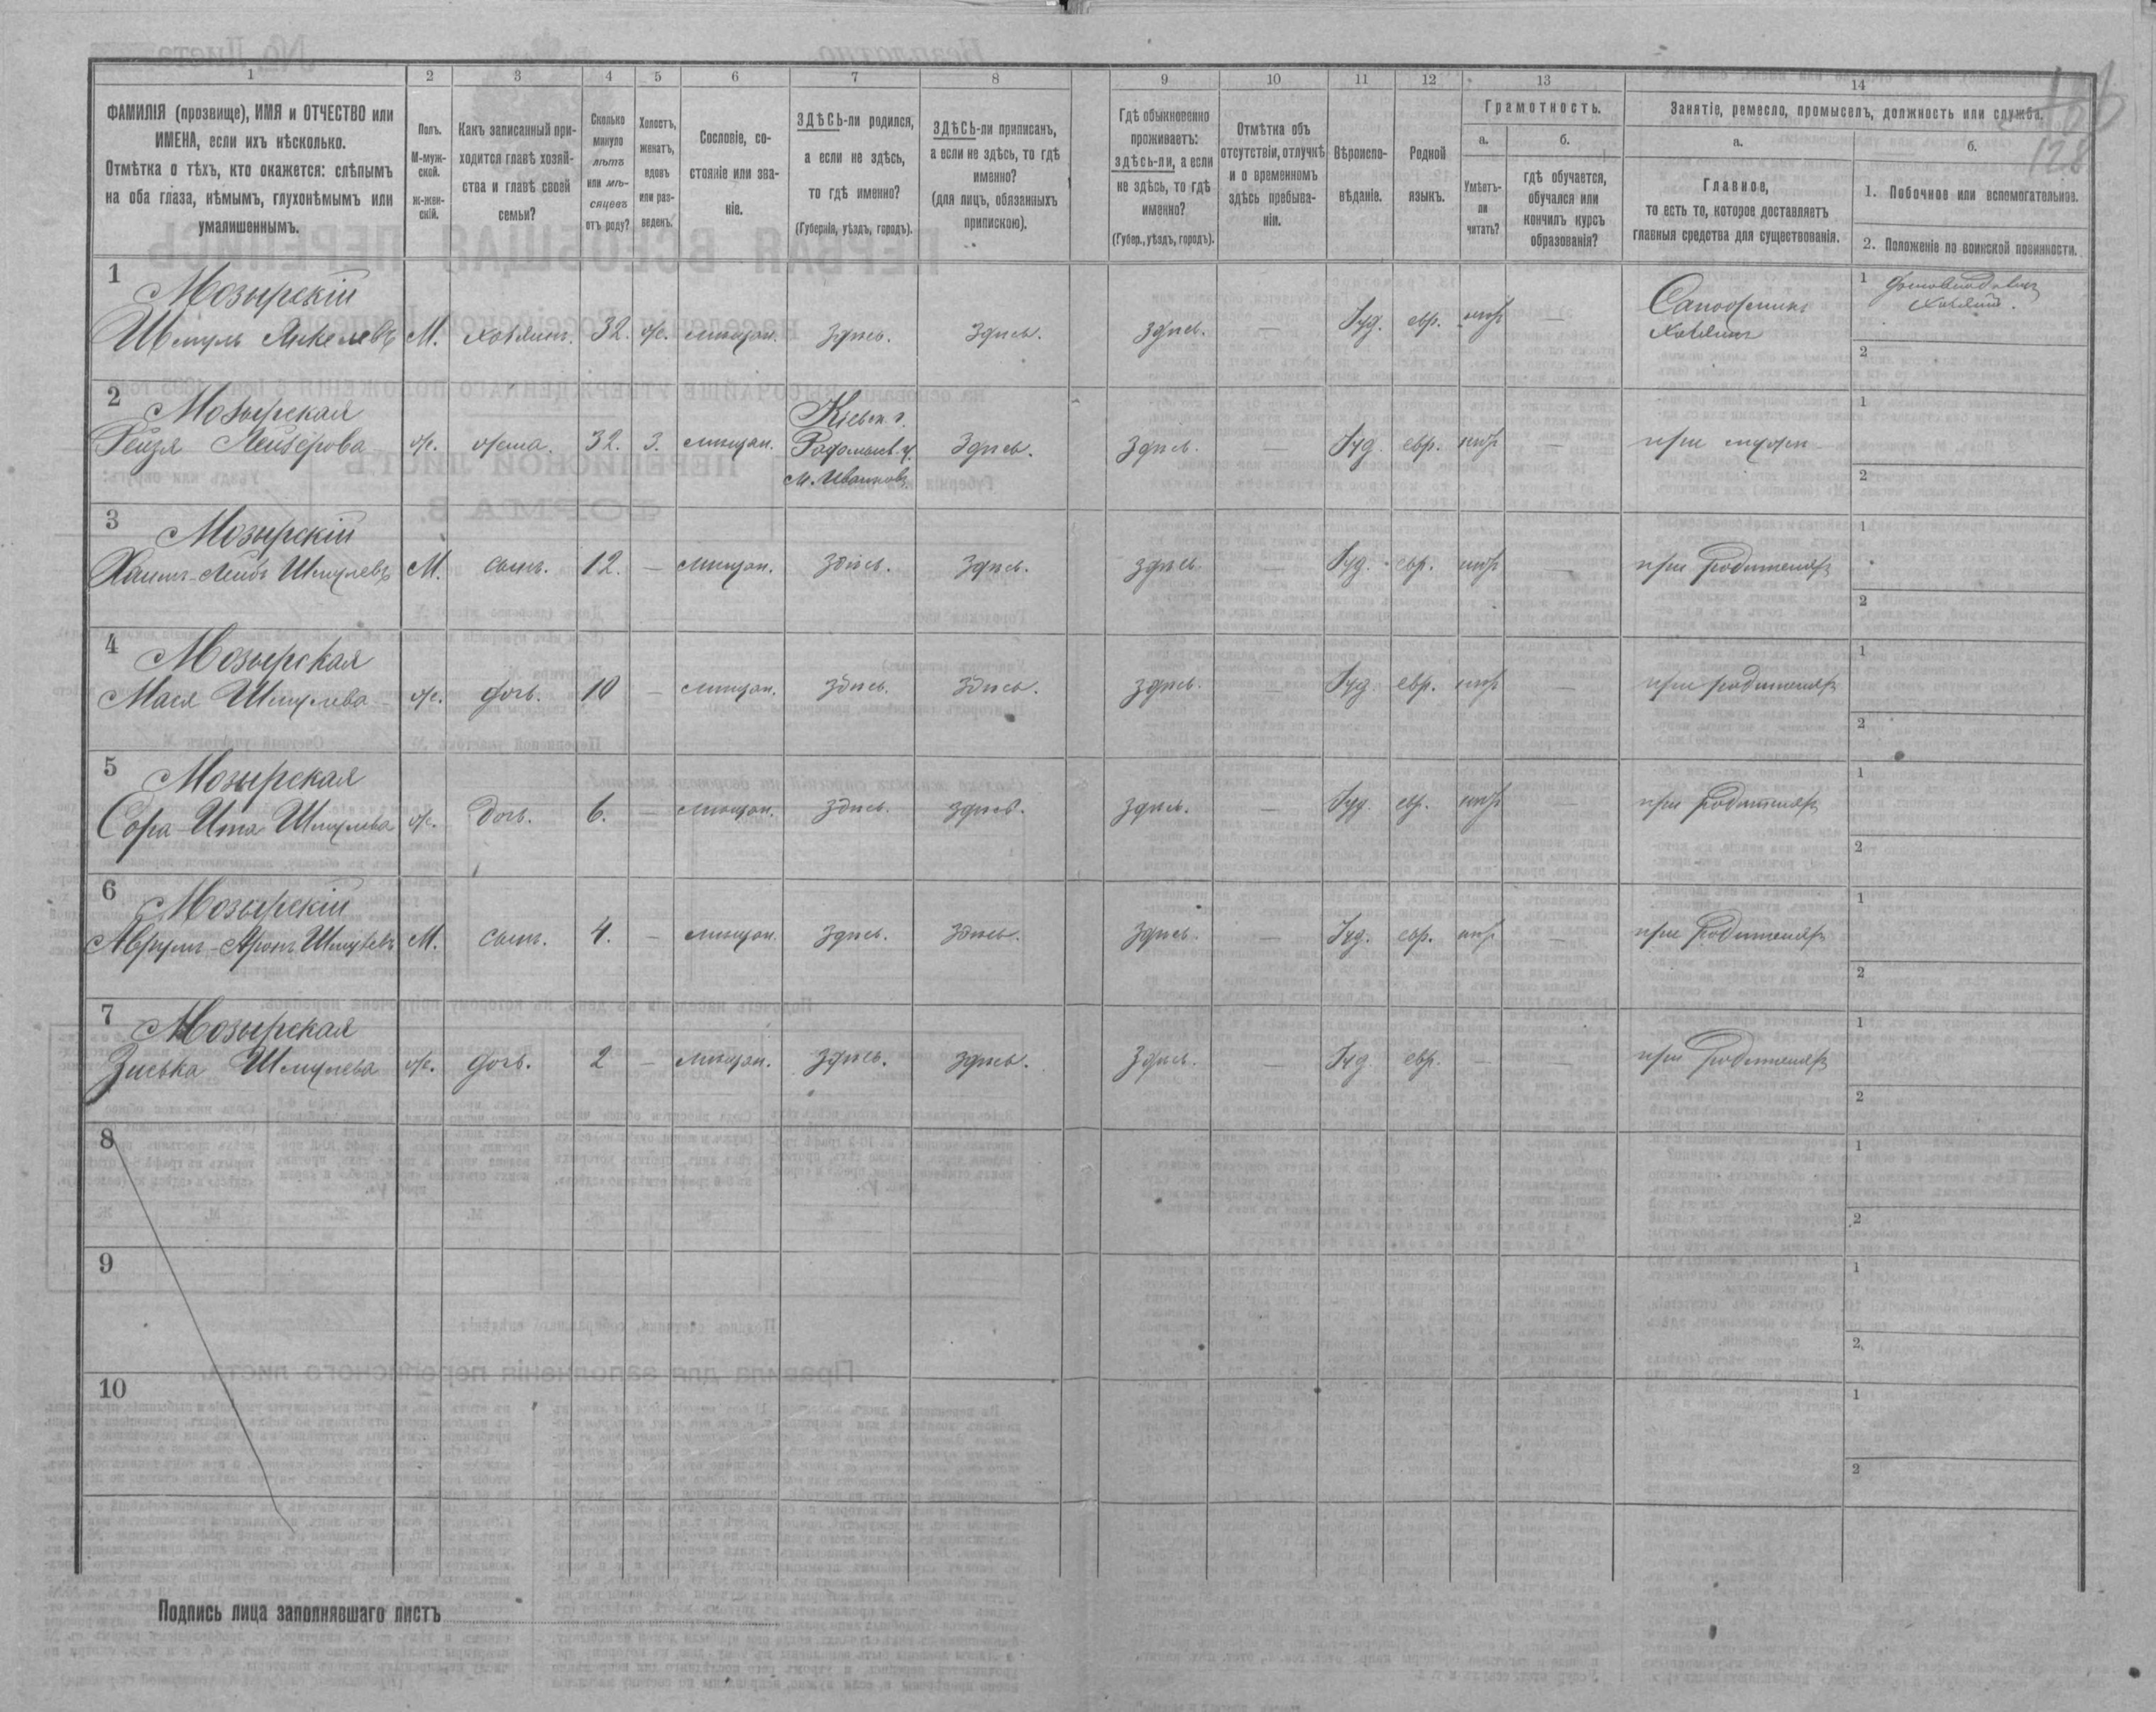 1 2 3 4 5 6 7 8 9 10 11 12 13 14
ФАМИЛІЯ (прозвище), ИМЯ и ОТЧЕСТВО или
ИМЕНА, если ихъ нѣсколько.
Отмѣтка о тѣхъ, кто окажется: слѣпымъ
на оба глаза, нѣмымъ, глухонѣмымъ или
умалишеннымъ.
Полъ.
М-муж-
ской.
Ж-жен-
скій.
Какъ записанный при-
ходится главѣ хозяй-
ства и главѣ своей
семьи?
Сколько
минуло
лѣтъ
или мѣ-
сяцевъ
отъ роду?
Холостъ,
женатъ,
вдовъ
или раз-
веденъ.
Сословіе, со-
стояніе или зва-
ніе.
ЗДѢСЬ-ли родился,
а если не здѣсь,
то гдѣ именно?
(Губернія, уѣздъ, городъ).
ЗДѢСЬ-ли приписанъ,
а если не здѣсь, то гдѣ
именно?
(для лицъ, обязанныхъ
припискою).
Гдѣ обыкновенно
проживаетъ:
здѣсь-ли, а если
не здѣсь, то гдѣ
именно?
(Губер., уѣздъ, городъ).
Отмѣтка объ
отсутствіи, отлучкѣ
и о временномъ
здѣсь пребыва-
ніи.
Вѣроиспо-
вѣданіе.
Родной
языкъ.
Грамотность.
а.
Умѣетъ-
ли
читать?
б.
гдѣ обучается,
обучался или
кончилъ курсъ
образованія?
Занятіе, ремесло, промыселъ, должность или служба.
а.
Главное,
то есть то, которое доставляетъ
главныя средства для существованія.
б.
1. Побочное или вспомогательное.
2. Положеніе по воинской повинности.
128
1 Мозырскій
Шмуль Янкелевъ М. хозяинъ. 32. ж. мѣщан. здѣсь. здѣсь. здѣсь. — Іуд. евр. — Сапожникъ
хозяинъ
1
хозяинъ.
2
2 Мозырская
Рейзя Лейзерова ж. жена. 32. з. мѣщан. Кіевск. г.
Радомысл. у.
м. Иванковъ здѣсь. здѣсь. — Іуд. евр. — при мужѣ
1
2
3 Мозырскій
Хаимъ-Лейбъ Шмулевъ М. сынъ. 12. — мѣщан. здѣсь. здѣсь. здѣсь. — Іуд. евр. — при родителяхъ
1
2
4 Мозырская
Мася Шмулева ж. дочь. 10 — мѣщан. здѣсь. здѣсь. здѣсь. — Іуд. евр. — при родителяхъ
1
2
5 Мозырская
Сора-Ита Шмулева ж. дочь. 6. — мѣщан. здѣсь. здѣсь. здѣсь. — Іуд. евр. — при родителяхъ
1
2
6 Мозырскій
Аврумъ-Аронъ Шмулевъ М. сынъ. 4. — мѣщан. здѣсь. здѣсь. здѣсь. — Іуд. евр. — при родителяхъ
1
2
7 Мозырская
Зиська Шмулева ж. дочь. 2 — мѣщан. здѣсь. здѣсь. здѣсь. — Іуд. евр. — — при родителяхъ
1
2
8
1
2
9
1
2
10
1
2
Подпись лица заполнявшаго листъ